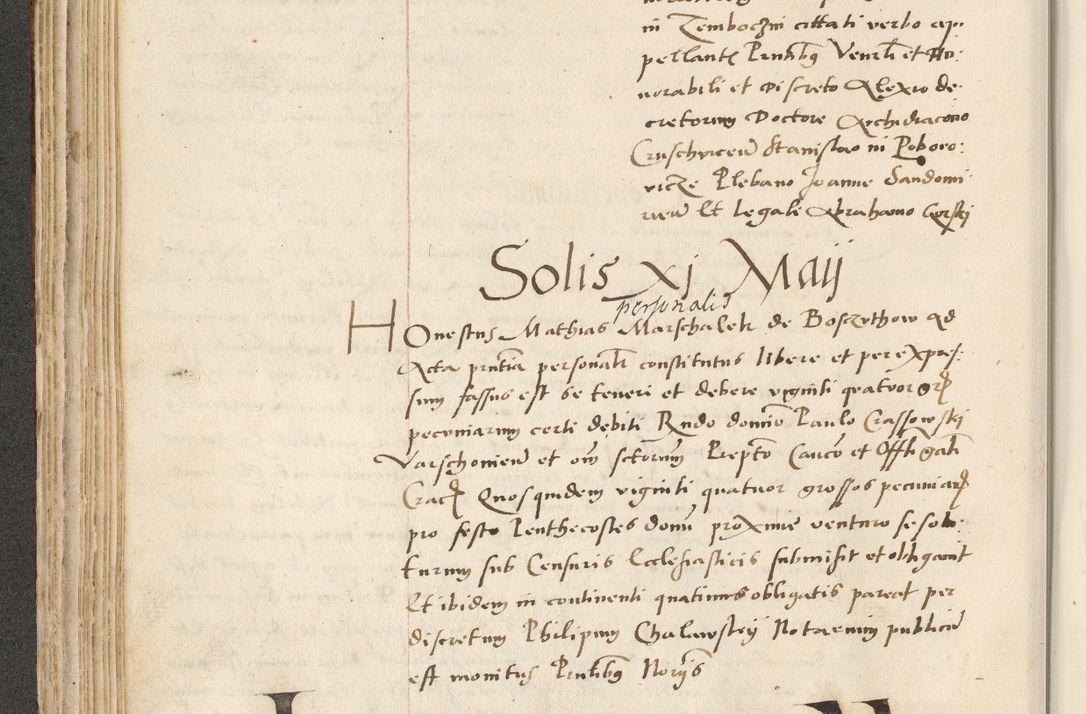 in Zemboczin cittati verbo ap-
pellante Pntibus Venrli et Ho-
norabili et Discreto Alexio de-
cretorum Doctore Archidiacono
Cruschvicen Stanislao in Poboro-
vicze Plebano Joanne Sandomi-
rien et legali Abrahamo Gorski
Solis xj Maij
personalis
Honestus Mathias Marschalek de Boszythow ad
Acta pntia personalr constitutus libere et per expres-
sum fassus est se teneri et debere viginti quatuor gr
pecuniarum certi debiti Rndo domino Paulo Crassowski
Varschovien et om sctorum Prepto Canco et Offli gnli
Crac Quos quidem viginti quatuor grossos pecuniar
pro festo Penthecostes domi proxime venturo se solu-
turum sub Censuris Ecclesiasticis submisit et obligavit
Et ibidem in continenti quatinus obligatis pareret per
discretum Philipum Chalawskij Notarium publicum
est monitus Pntibus Norijs